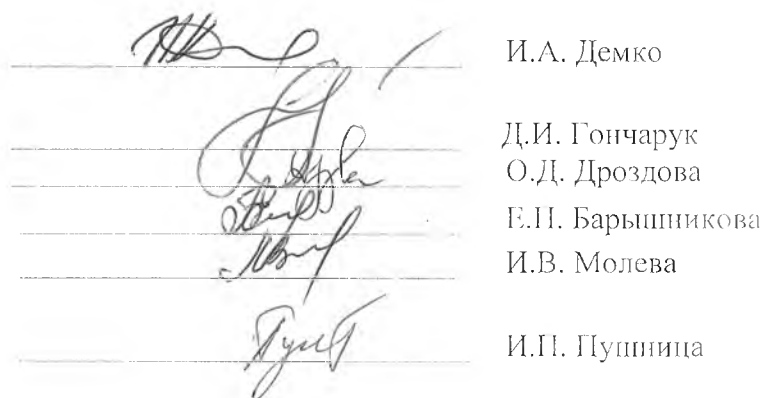 И.А. Демко
Д.И. Гончарук
О.Д. Дроздова
Е.П. Барышникова
И.В. Молева
И.П. Пушница